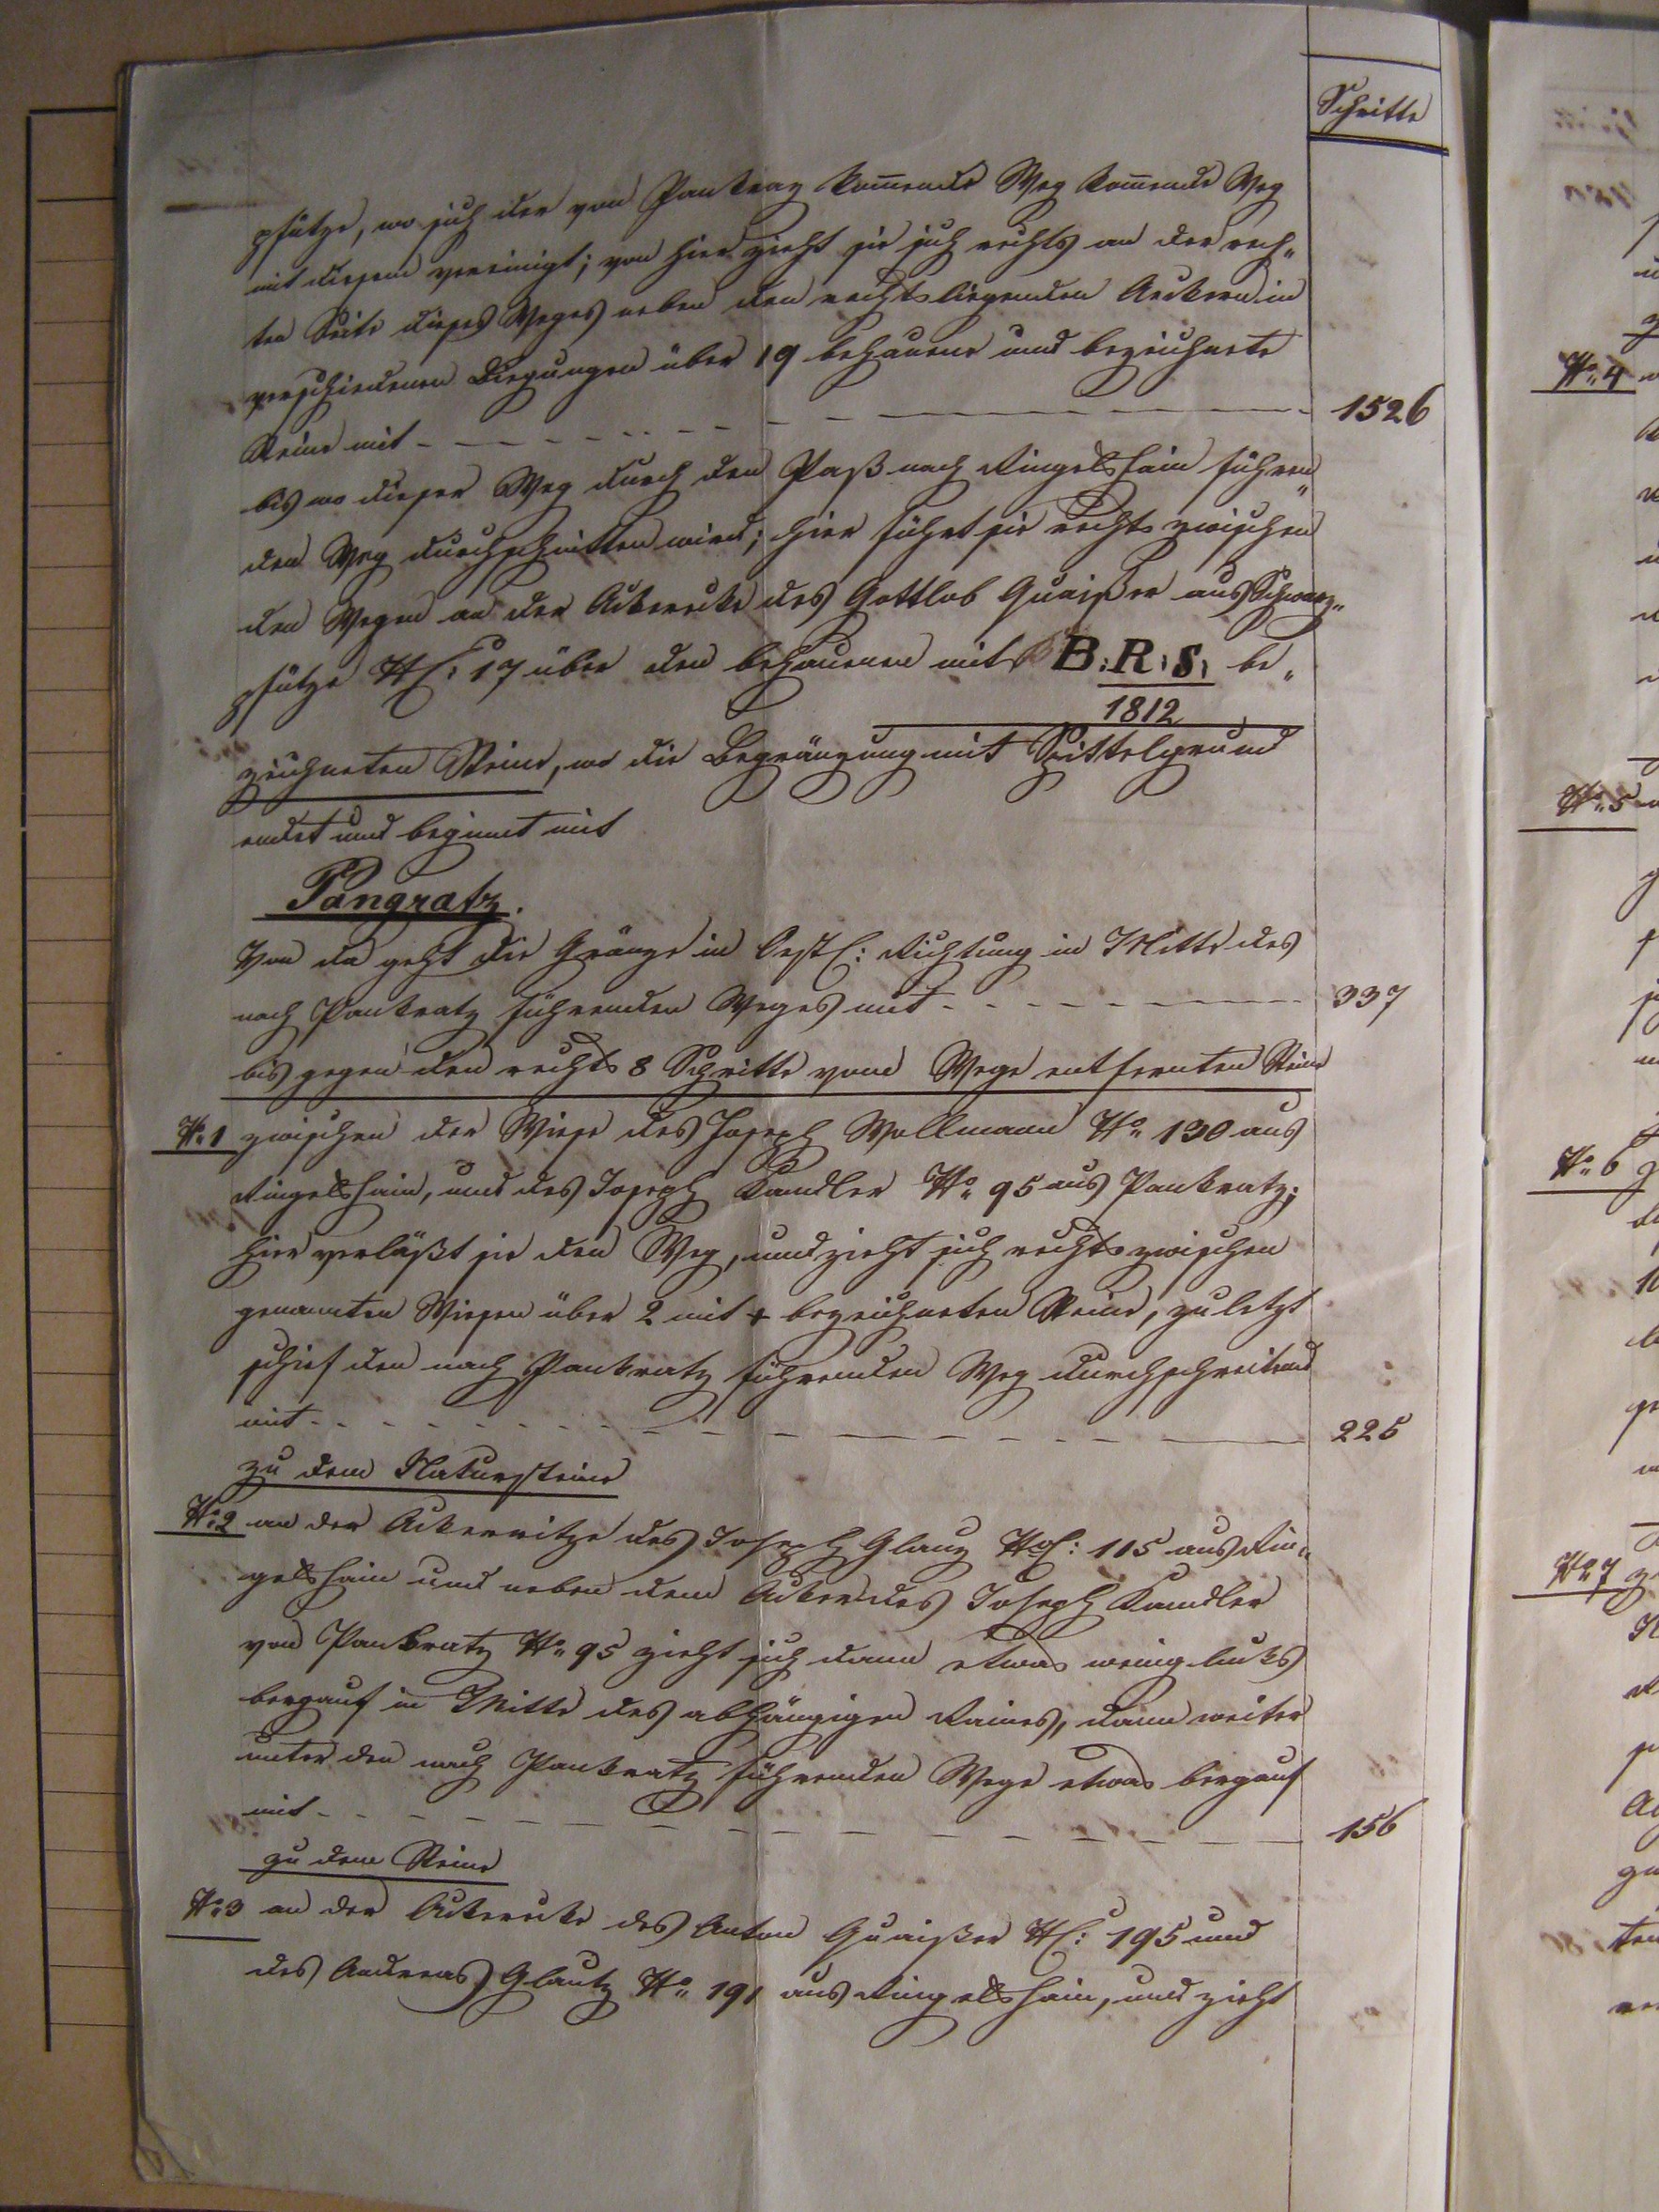 Schritte
pfütze, wo sich der von Pankraz kom̄ende Weg kom̄ende Weg
mit diesem vereinigt; von hier zieht sie sich rechts an der rech„
ten Seite dieses Weges neben den rechts liegenden Aeckern in
verschiedenen Biegungen über 19 behauene und bezeichnete
Steine mit - - - - - 1526
bis wo dieser Weg durch den Paß nach Ringelshain führen„
den Weg durchschnitten wird; hier führt sie rechts zwischen
den Wegen an der Ackerecke des Gottlob Quaißer aus Schwarz„
pfütze NC: 17 über den behauenen mit B.R.S. be„
1812
zeichneten Steine, wo die Begränzung mit Spittelgrund
endet und beginnt mit
Pangratz.
Von da geht die Gränze in Oestl: Richtung in Mitte des
nach Pankratz führenden Weges mit - - - - - 337
bis gegen den rechts 8 Schritte vom Wege entfernten Stein
No. 1 zwischen der Wiese des Joseph Wollmann No. 130 aus
Ringelshain, und des Joseph Kandler No. 95 aus Pankratz;
hier verläßt sie den Weg, und zieht sich rechts zwischen
genannten Wiesen über 2 mit + bezeichneten Steine, zuletzt
schief den nach Pankratz führenden Weg durchschreitend
mit - - - - - 225
zu dem Natursteine
No. 2 an der Ackerspitze des Joseph Glanz NC: 115 aus Rin„
gelshain und neben dem Acker des Joseph Kandler
von Pankratz No. 95 zieht sich dann etwas wenig links
bergauf in Mitte des abhängigen Raines, dann weiter
unter den nach Pankratz führenden Wege etwas bergauf
mit - - - - - 156
zu dem Steine
No. 3 an der Ackerecke des Anton Quaißer NC: 195 und
des Andreas Glautz No. 191 aus Ringelshain, und zieht
No. 4
No. 5
No. 6
No. 7